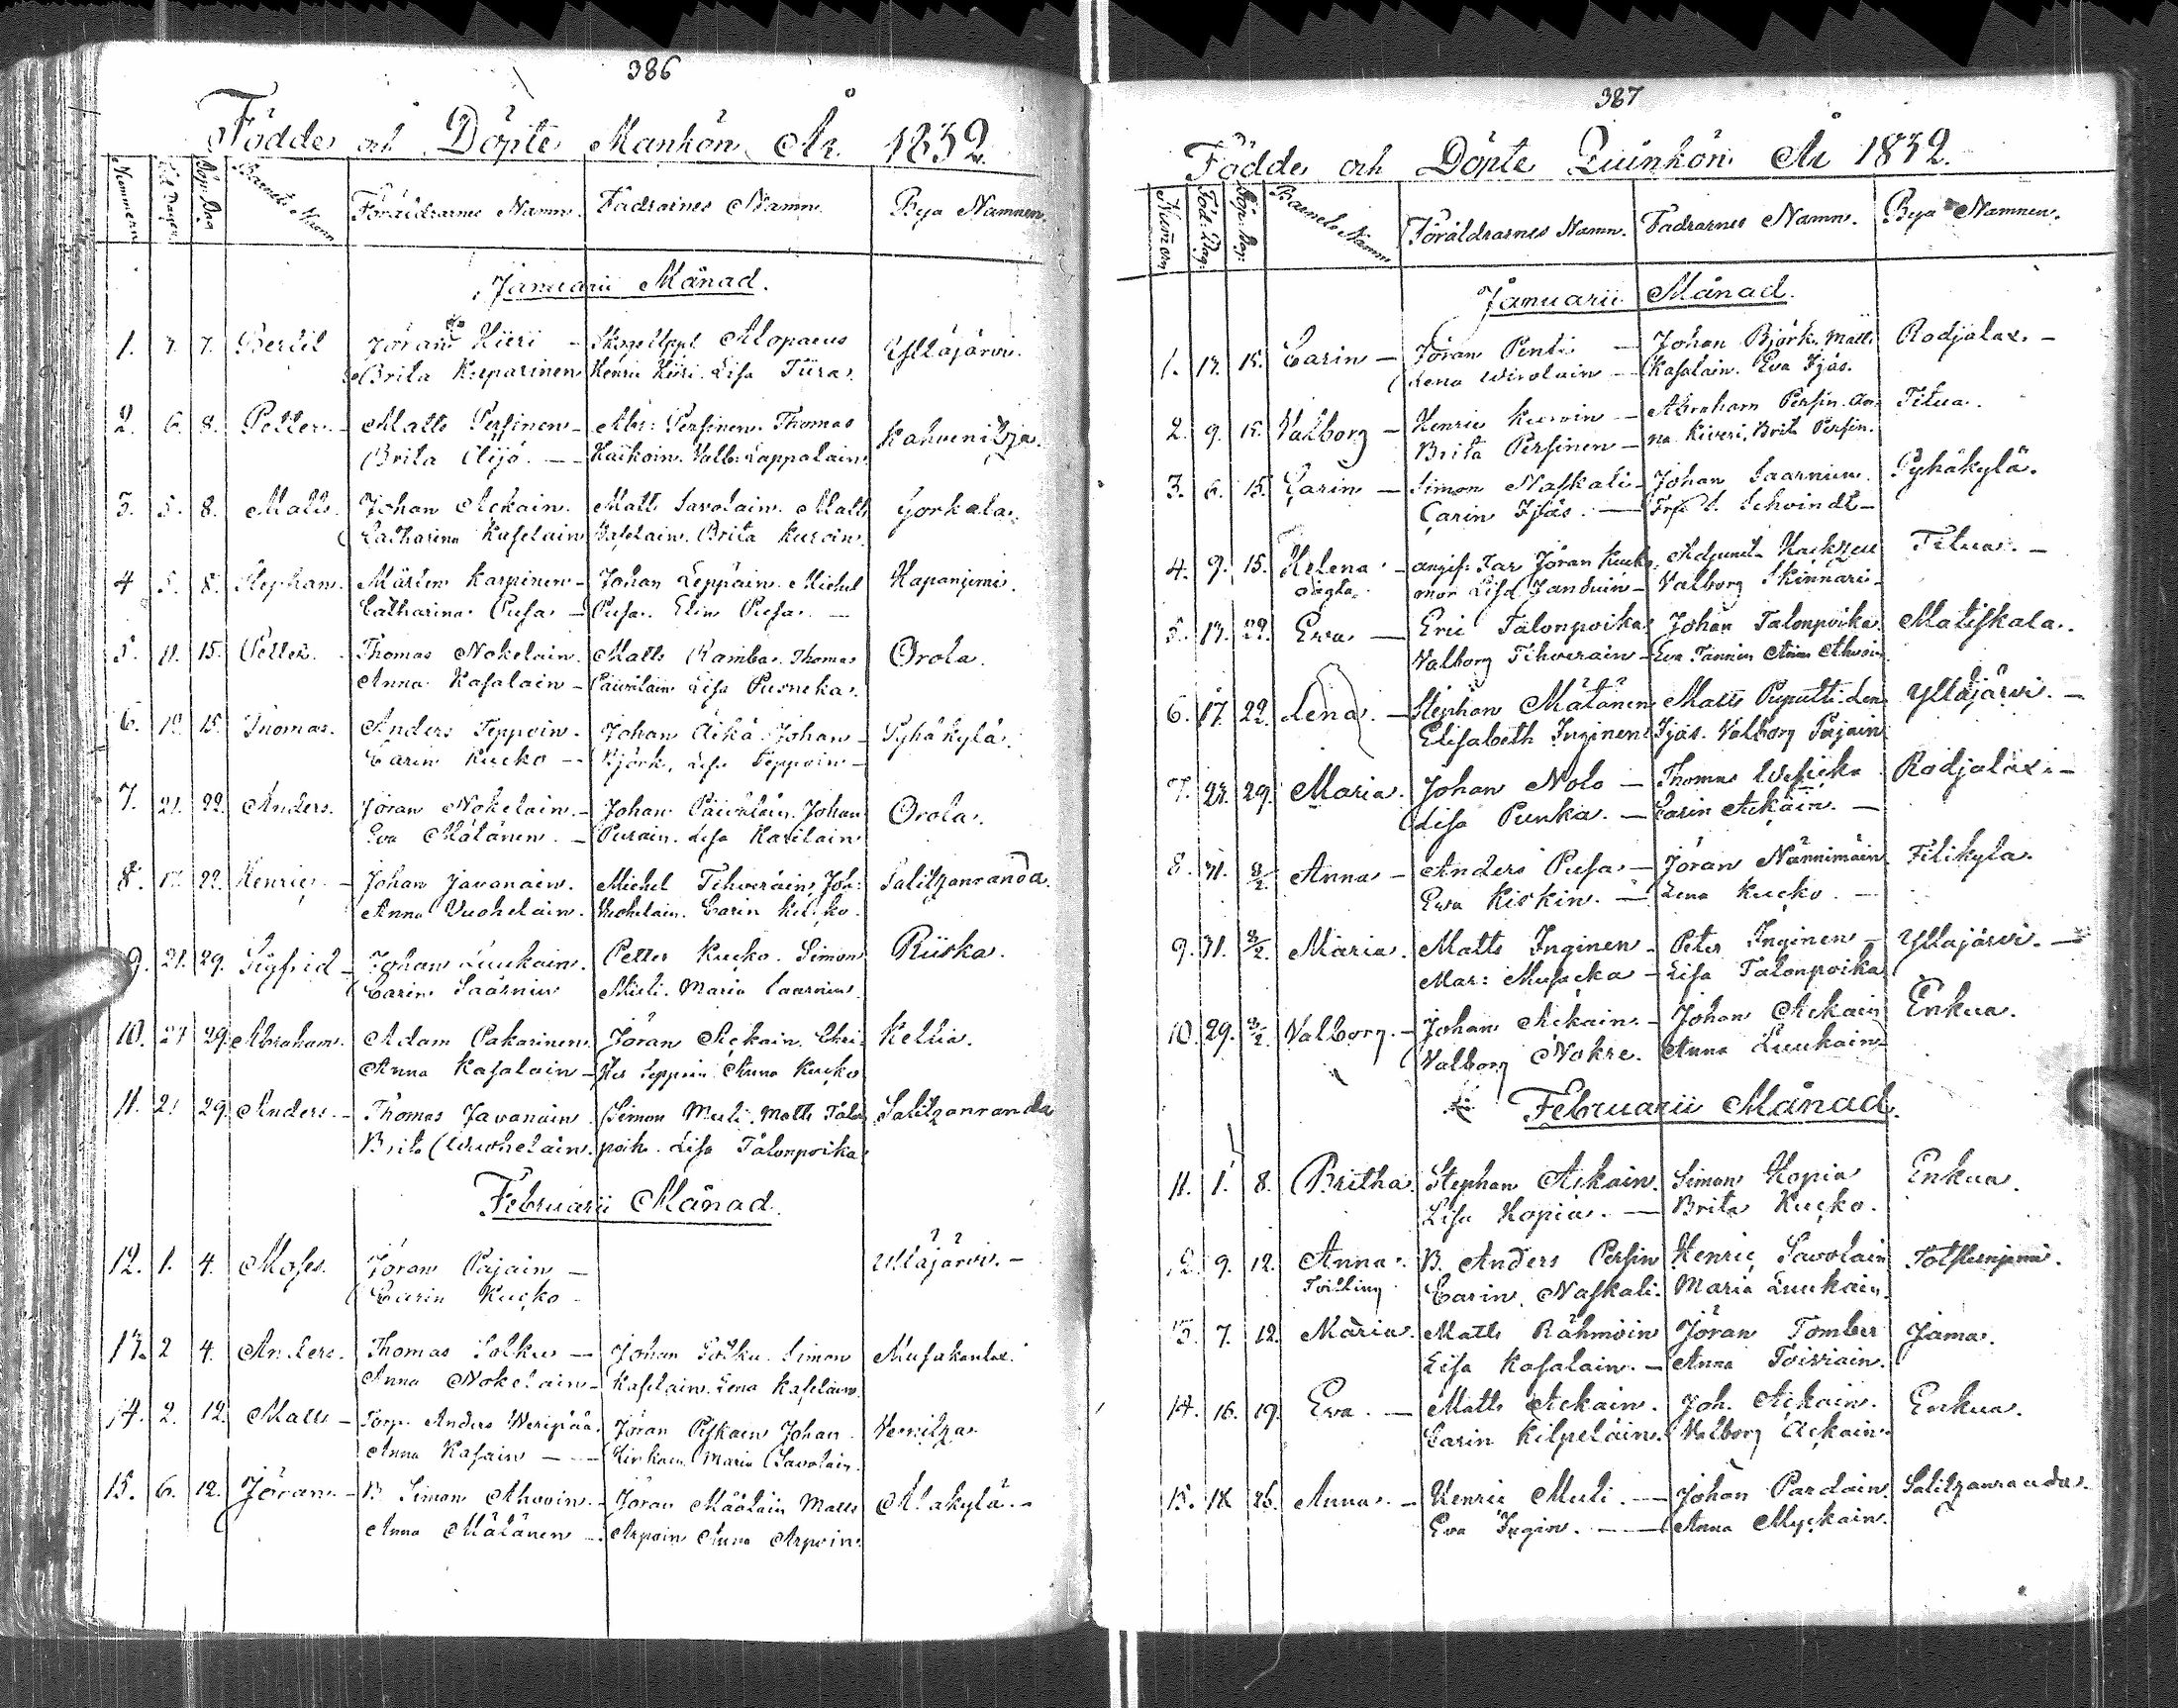 386
Födde och Döpte Mankön År 1832.
Nummern Föd. Dagen Döp. Dag Barnets Namn Föräldrarnes Namn. Fadrarnes Namn. Bya Namnen.
Januarii Månad.
1. 7. 7. Bertil Jöran Hiiri - Alopaeus Ylläjärvi.
Brita Kuparinen Henric Hiiri. Lisa Tiira.
2. 6. 8. Petter. - Matts Persinen - Abr: Persinen. Thomas Kahvenitza.
Brita Äijö. - - Häiköin. Valb: Lappalain.
3. 5. 8. Matts. Johan Ackain. Matts Savolain. Matts Gorkala.
Catharina Kaselain Kaselain. Brita Kurvin.
4 5. 8. Stephan. Mårten Karpinen - Johan Leppäin. Michel Hapanjemi.
Catharina Pusa - Pusa. Elin Pusa. -
5. 11. 15. Petter. Thomas Nokelain. Matts Ramba. Thomas Orola.
Anna Kasalain - Päivöläin Lisa Pusneka.
6. 10. 15. Thomas. Anders Teppoin. Johan Äikä. Johan - Pyhäkylä.
Carin Kucko - - Björk. Lisa Teppoin -
7. 21. 22. Anders. Jöran Nokelain. - Johan Päivöläin. Johan Orola.
Eva Mätänen. - Purain. Lisa Karilain
8. 17. 22. Henric. - Johan Javanain. Michel Tihveräin, Joh: Salitzanranda.
Anna Vuohelain. Vuohelain. Carin Kucko.
9. 21. 29. Sigfrid - Johan Luukain. Petter Kucko. Simon Riiska.
Carin Saarnin Muli. Maria Saarnin.
10. 27 29. Abraham. Adam Pakarinen. Jöran Ackain. Chri- Kellia.
Anna Kasalain - Teppoin Anna Kucko
11. 21 29. Anders. - Thomas Javanain Simon Muli. Matts Talon Salitzanranda
Brita Wuohelain. poik. Lisa Talonpoika
Februarii Månad.
12. 1. 4. Moses. Jöran Pajain - Ylläjärvi. -
Carin Kucko -
13. 2 4. Anders. Thomas Solku - Johan Solku. Simon Musakanlax.
Anna Nokelain - Kaselain. Lena Kaselain.
14. 2. 12. Matts - Torp. Anders Weripää. Jöran Piskain Johan Vernitza
Anna Kasain - - - Maria Savolain.
15. 6. 12. Jöran. - B. Simon Ahvoin. - Jöran Määläin Matts Alakylä. -
Anna Mätänen - Arpoin Anna Arpoin.
387
Födde och Döpte Quinkön År 1832.
Nummern Föd: Dag: Döp: Dag: Barnets Namn Föräldrarnes Namn. Fadrarnes Namn. Bya Namnen.
Januarii Månad.
1. 13. 15. Carin - Jöran Penti - Johan Björk. Matts Rodjalax. -
Lena Wirolain - Kasalain. Eva Ijäs.
2. 9. 15. Valborg - Henric Kurvin - Abraham Persin. An- Titua.
Brita Persinen - na Kiveri, Brit. Persin.
3. 6. 15. Carin - Simon Naskali - Johan Saarnin. Pyhäkylä.
Carin Ijäs. - Schvindt -
4. 9. 15. Helena - angif: Far Jöran Kucko. Adjunct Titua. -
oägta. mor Lisa Janduin - Valborg Skinnari -
5. 13. 22. Eva - Eric Talonpoika Johan Talonpoika. Matiskala.
Valborg Tihverain - Eva Tannin Anna Ahvoin
6. 17. 22. Lena. - Stephan Mätänen Matts Puputti. Len. Ylläjärvi. -
Elisabeth Inginen Ijäs. Valborg Pajain
7. 23. 29. Maria. Johan Nolo - Thomas Wesicko Rodjalax. -
Lisa Punka. - Carin Ackain. -
8. 31. 3/2 Anna - Anders Pusa - Jöran Nännimäin Filikyla.
Eva Kiskin. - Lena Kucko. -
9. 31. 3/2. Maria. Matts Inginen - Peter Inginen - Yllajärvi. -
Mar: Musacka - Lisa Talonpoika
10. 29. 3/2 Valborg. - Johan Ackain. - Johan Ackain Enkua.
Valborg Nokre. Anna Luukain
Februarii Månad.
11. 1. 8. Britha. Stephan Ackain. Simon Hopia Enkua.
Lisa Hopia. - Brita Kucko.
12. 9. 12. Anna. B. Anders Persin Henric Savolain
Tvilling Carin Naskali. Maria Luukain.
13. 7. 12. Maria. Matts Rähmöin Jöran Tomber Jama.
Lisa Kasalain. - Anna Toiviain.
14. 16. 19. Eva. - Matts Ackain. Joh. Ackain. Enkua.
Carin Kilpeläin. Valborg Ackain.
15. 18 26. Anna. - Henric Muli. - Johan Pardain. Salitzanranda.
Eva Ingin. - - Anna Myckain.